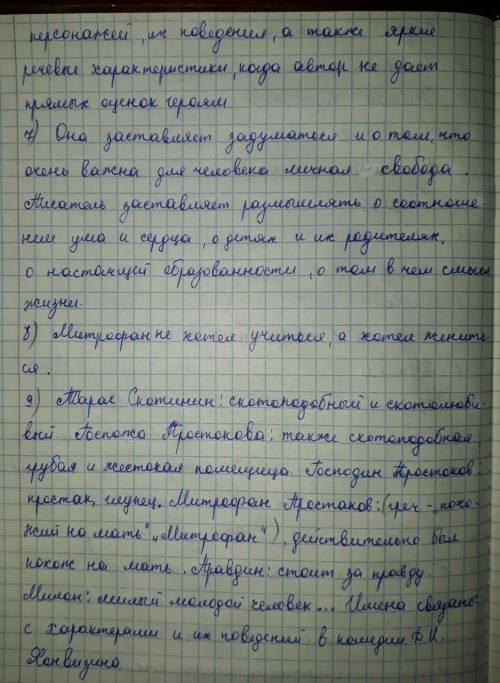 персонажей, их поведения, а также яркие
речевые характеристики, когда автор не дает
прямых оценок героям
7) Она заставляет задуматься и о том, что
очень важна для человека личная свобода.
Писатель заставляет размышлять о соотноше-
нии ума и сердца, о детях и их родителях,
о настоящей образованности, о том в чем смысл
жизни.
8) Митрофан не хотел учиться, а хотел женить-
ся.
9) Тарас Скотинин: скотоподобный и скотолюби-
вый. Госпожа Простокова: также скотоподобная
грубая и жестокая помещица. Господин Простоков:
простак, глупец. Митрофан Простаков: (греч - "похо-
жий на мать" "Митрофан"), действительно был
похож на мать. Правдин: стоит за правду.
Милон: милый молодой человек... Имена связаны
с характерами и их поведений в комедии Д.И.
Фонвизина.